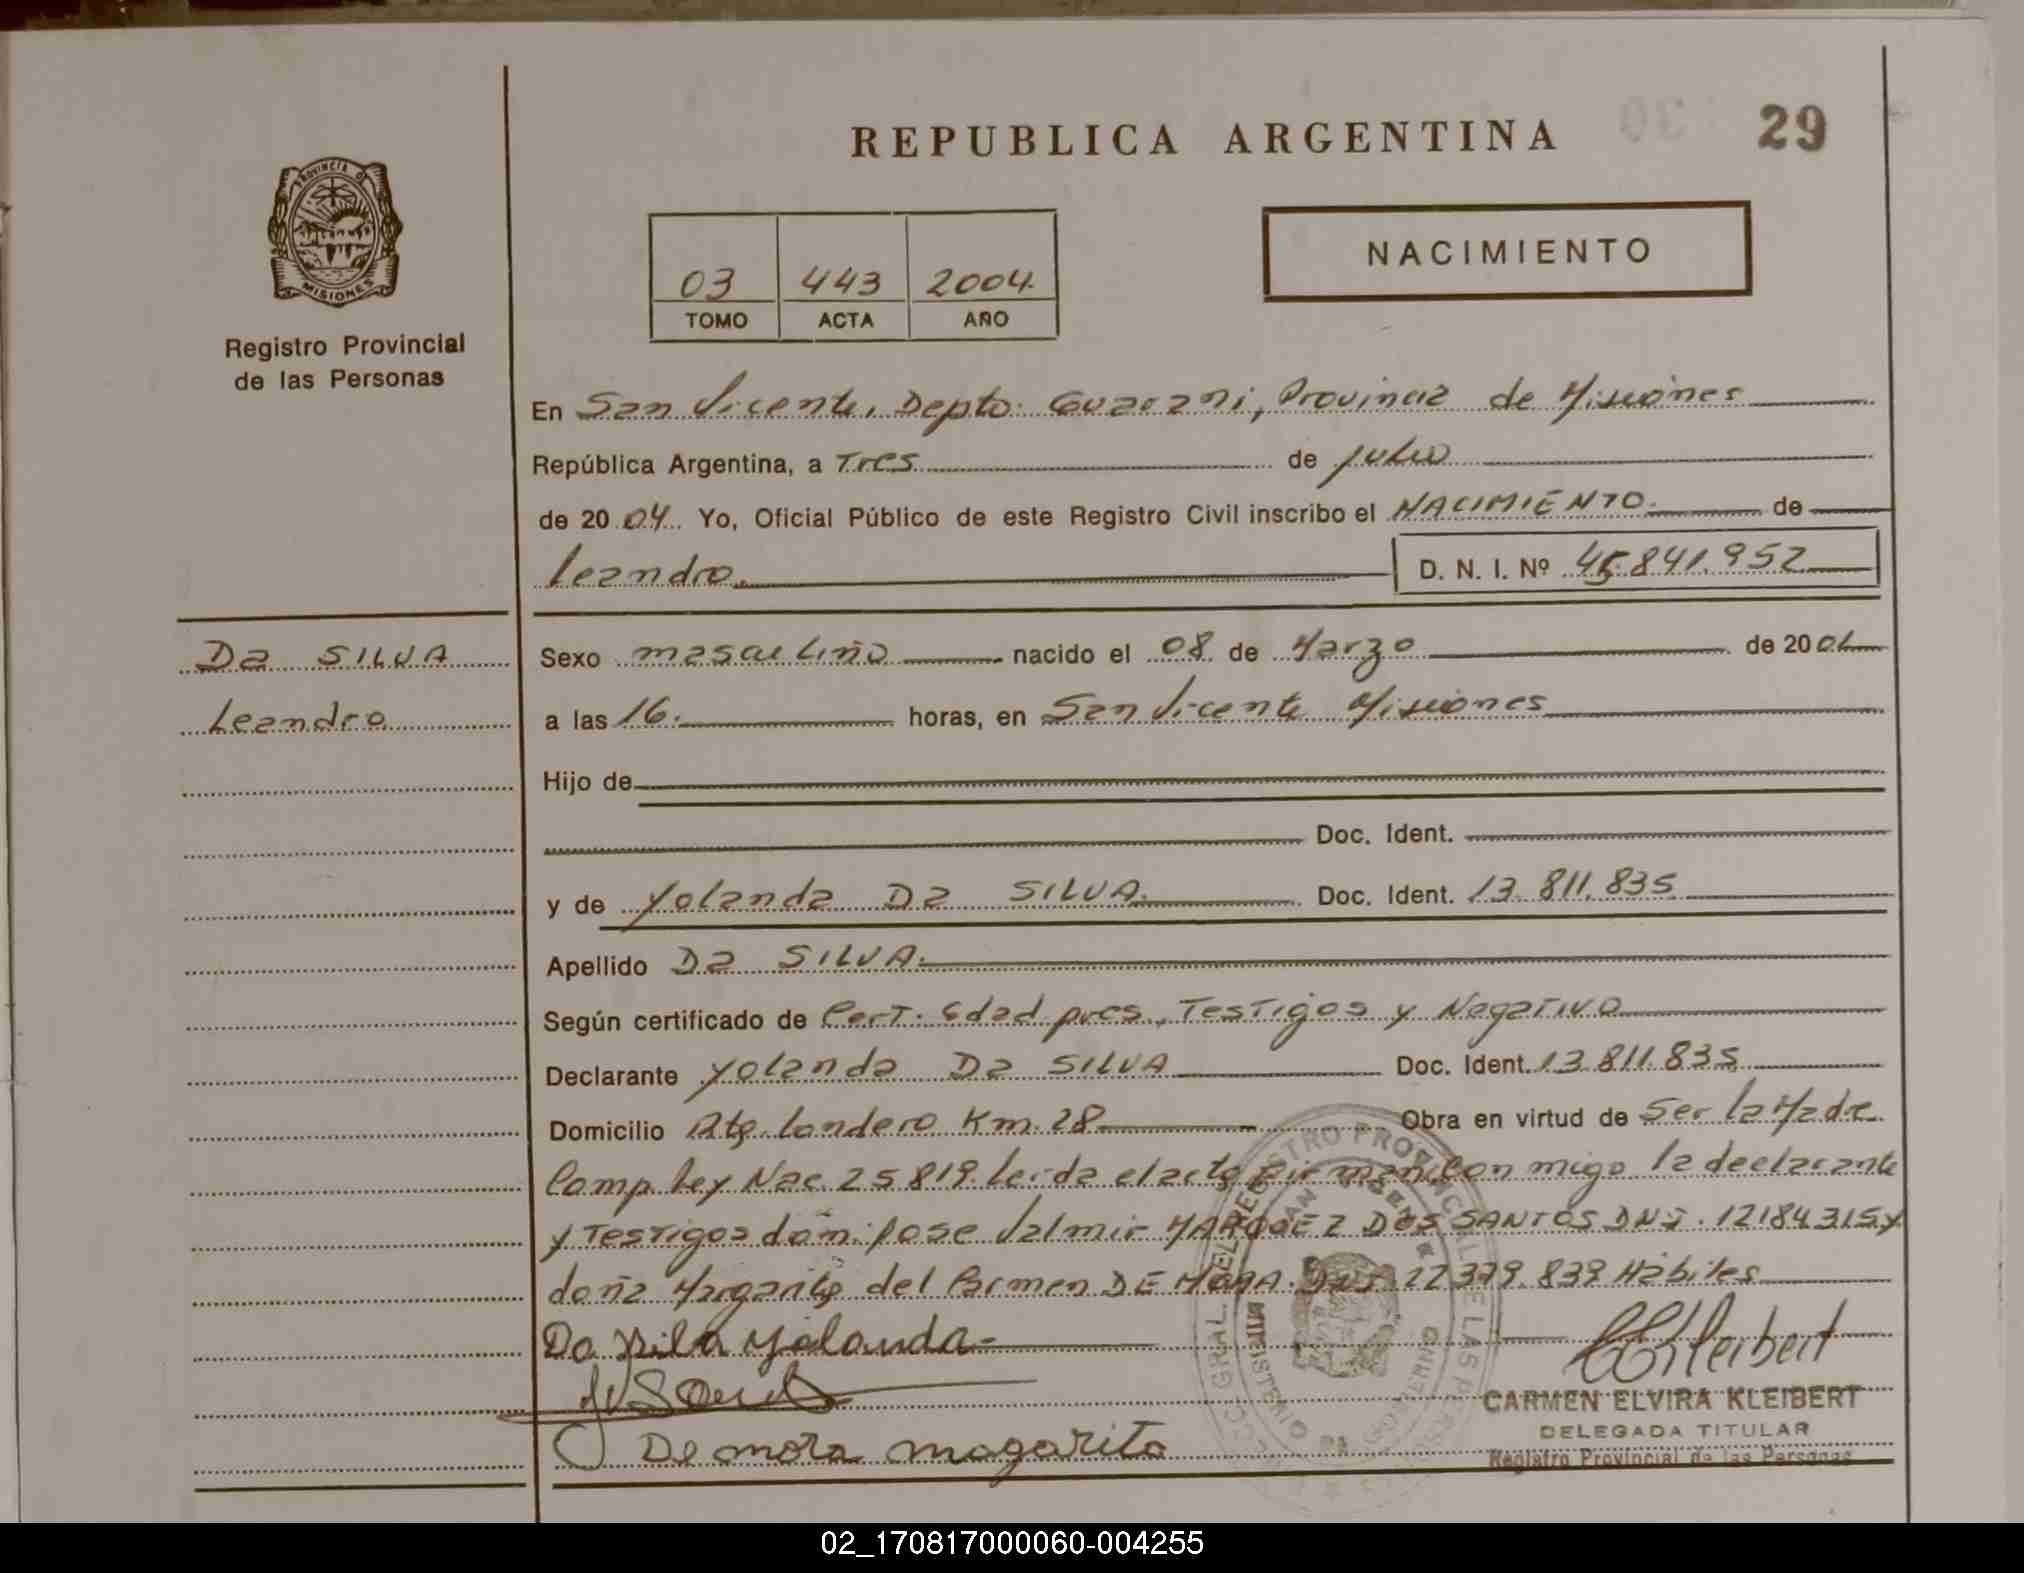 REPUBLICA ARGENTINA
29
PROVINCIA D
MISIONES
Registro Provincial
de las Personas
03 443 2004
TOMO ACTA AÑO
NACIMIENTO
En San Vicente, Depto. Guarani, Provincia de Misiones
República Argentina, a Tres de julio
de 2004 Yo, Oficial Público de este Registro Civil inscribo el NACIMIENTO de
Leandro. D. N. I. Nº 45.841.952
Da SILVA
Leandro
Sexo masculino nacido el 08 de Marzo de 200
a las 16. horas, en San Vicente Misiones
Hijo de
Doc. Ident.
y de Yolanda Da SILVA. Doc. Ident. 13.811.835
Apellido Da SILVA.
Según certificado de Cert. Edad pres, Testigos y Negativo
Declarante Yolanda Da SILVA Doc. Ident. 13.811.835
Domicilio Km. 28 Obra en virtud de Ser la Madre
Comp. Ley Nac. 25819. Leida el acta con migo la declarante
y Testigos don: Jose Valmir MARQUEZ DOS SANTOS DNI. 12184315 y
doña Margarita del Carmen DE MORA. DNI. 22379.839 Habiles
Da Silva Yolanda
De mora magarita
CARMEN ELVIRA KLEIBERT
DELEGADA TITULAR
Registro Provincial de las Personas
02_170817000060-004255